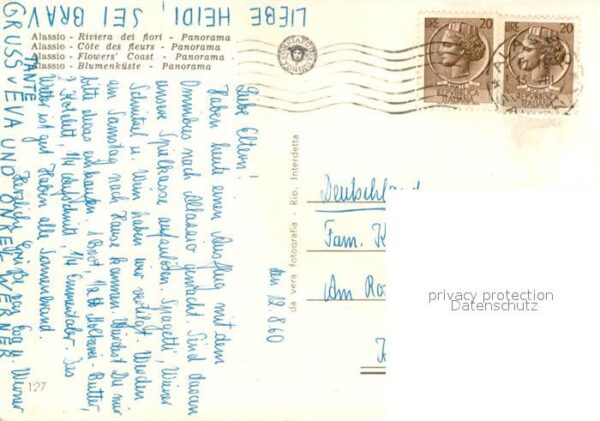 LIEBE HEIDI, SEI BRAV
GRUSS EVA UND ONKEL WERNER
TANTE
Alassio - Riviera dei fiori - Panorama
Alassio - Côte des fleurs - Panorama
Alassio - Flowers' Coast - Panorama
Alassio - Blumenküste - Panorama
den 12.8.60
Liebe Eltern!
Haben heute einen Ausflug mit dem
Omnibus nach Alassio gemacht. Sind davon
unsere Spielkasse aufzulösen. Spagetti, Wiener
Schnitzel u. Wein haben wir vertilgt. Werden
am Samstag nach Hause kommen. Würdest Du mir
bitte etwas einkaufen. 1 Brot, 1/2 Molkerei-Butter,
2 Kotelett, 1/4 Aufschnitt, 1/4 Emmentaler. Das
Wetter ist gut. Haben alle Sonnenbrand.
Herzliche Grüße von Eva u. Werner
127
da vera fotografia - Rip. Interdetta
Deutschland
Fam. K
Am Ro
LIRE 20
REPUBBLICA
ITALIANA
LIRE 20
REPUBBLICA
ITALIANA
privacy protection
Datenschutz